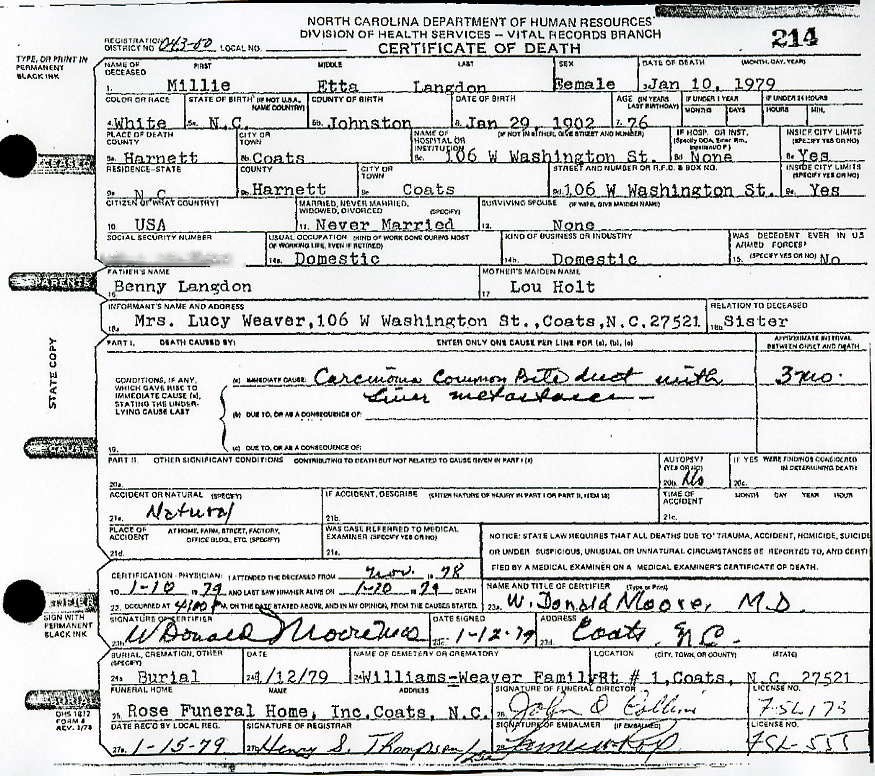 NORTH CAROLINA DEPARTMENT OF HUMAN RESOURCES
DIVISION OF HEALTH SERVICES – VITAL RECORDS BRANCH
CERTIFICATE OF DEATH
214
REGISTRATION DISTRICT NO. 043-50 LOCAL NO.
TYPE, OR PRINT IN PERMANENT BLACK INK
NAME OF DECEASED FIRST MIDDLE LAST SEX DATE OF DEATH (MONTH, DAY, YEAR)
1. Millie Etta Langdon Female 3. Jan 10, 1979
COLOR OR RACE STATE OF BIRTH (IF NOT U.S.A., NAME COUNTRY) COUNTY OF BIRTH DATE OF BIRTH AGE (IN YEARS LAST BIRTHDAY) IF UNDER 1 YEAR MONTHS DAYS IF UNDER 24 HOURS HOURS MIN.
4. White 5a. N.C. 5b. Johnston 6. Jan 29, 1902 7. 76
PLACE OF DEATH COUNTY CITY OR TOWN NAME OF HOSPITAL OR INSTITUTION (IF NOT IN EITHER, GIVE STREET AND NUMBER) IF HOSP. OR INST. INSIDE CITY LIMITS (SPECIFY YES OR NO)
8a. Harnett 8b. Coats 8c. 106 W Washington St. 8d. None 8e. Yes
RESIDENCE-STATE COUNTY CITY OR TOWN STREET AND NUMBER OR R.F.D. & BOX NO. INSIDE CITY LIMITS (SPECIFY YES OR NO)
9a. N.C. 9b. Harnett 9c. Coats 9d. 106 W Washington St. 9e. Yes
CITIZEN OF WHAT COUNTRY? MARRIED, NEVER MARRIED, WIDOWED, DIVORCED (SPECIFY) SURVIVING SPOUSE (IF WIFE, GIVE MAIDEN NAME)
10. USA 11. Never Married 12. None
SOCIAL SECURITY NUMBER USUAL OCCUPATION (KIND OF WORK DONE DURING MOST OF WORKING LIFE, EVEN IF RETIRED) KIND OF BUSINESS OR INDUSTRY WAS DECEDENT EVER IN U.S. ARMED FORCES? (SPECIFY YES OR NO)
14a. Domestic 14b. Domestic 15. No
PARENTS
FATHER'S NAME MOTHER'S MAIDEN NAME
16. Benny Langdon 17. Lou Holt
INFORMANT'S NAME AND ADDRESS RELATION TO DECEASED
18a. Mrs. Lucy Weaver, 106 W Washington St., Coats, N.C. 27521 18b. Sister
STATE COPY
PART I. DEATH CAUSED BY: ENTER ONLY ONE CAUSE PER LINE FOR (a), (b), (c) APPROXIMATE INTERVAL BETWEEN ONSET AND DEATH
CONDITIONS, IF ANY, WHICH GAVE RISE TO IMMEDIATE CAUSE (a), STATING THE UNDERLYING CAUSE LAST
(a) IMMEDIATE CAUSE: Carcinoma Common Bile duct with 3 mo.
liver metastases
(b) DUE TO, OR AS A CONSEQUENCE OF:
19. (c) DUE TO, OR AS A CONSEQUENCE OF:
CAUSE
PART II. OTHER SIGNIFICANT CONDITIONS CONTRIBUTING TO DEATH BUT NOT RELATED TO CAUSE GIVEN IN PART I (a) AUTOPSY? (YES OR NO) IF YES WERE FINDINGS CONSIDERED IN DETERMINING DEATH
20a. 20b. No 20c.
ACCIDENT OR NATURAL (SPECIFY) IF ACCIDENT, DESCRIBE (ENTER NATURE OF INJURY IN PART I OR PART II, ITEM 18) TIME OF ACCIDENT MONTH DAY YEAR HOUR
21a. Natural 21b. 21c.
PLACE OF ACCIDENT AT HOME, FARM, STREET, FACTORY, OFFICE BLDG., ETC. (SPECIFY) WAS CASE REFERRED TO MEDICAL EXAMINER (SPECIFY YES OR NO)
21d. 21e.
NOTICE: STATE LAW REQUIRES THAT ALL DEATHS DUE TO TRAUMA, ACCIDENT, HOMICIDE, SUICIDE
OR UNDER SUSPICIOUS, UNUSUAL OR UNNATURAL CIRCUMSTANCES BE REPORTED TO, AND CERTI
FIED BY A MEDICAL EXAMINER ON A MEDICAL EXAMINER'S CERTIFICATE OF DEATH.
CERTIFICATION-PHYSICIAN: I ATTENDED THE DECEASED FROM Nov. 1978
TO 1-10 1979 AND LAST SAW HIM/HER ALIVE ON 1-10 1979 DEATH
22. OCCURRED AT 4:00 P M. ON THE DATE STATED ABOVE, AND IN MY OPINION, FROM THE CAUSES STATED.
NAME AND TITLE OF CERTIFIER (Type or Print)
23a. W. Donald Moore, M.D.
SIGN WITH PERMANENT BLACK INK
SIGNATURE OF CERTIFIER DATE SIGNED ADDRESS
23b. W Donald Moore 23c. 1-12-79 23d. Coats, N.C.
BURIAL, CREMATION, OTHER (SPECIFY) DATE NAME OF CEMETERY OR CREMATORY LOCATION (CITY, TOWN, OR COUNTY) (STATE)
24a. Burial 1/12/79 Williams-Weaver Family Rt # 1, Coats, N.C. 27521
FUNERAL HOME NAME ADDRESS SIGNATURE OF FUNERAL DIRECTOR LICENSE NO.
25. Rose Funeral Home, Inc. Coats, N.C. 26.
DHS 1872
FORM 8
REV. 1/78
DATE REC'D BY LOCAL REG. SIGNATURE OF REGISTRAR SIGNATURE OF EMBALMER (IF EMBALMED) LICENSE NO.
27a. 1-15-79 27b. Henry S. Thompson